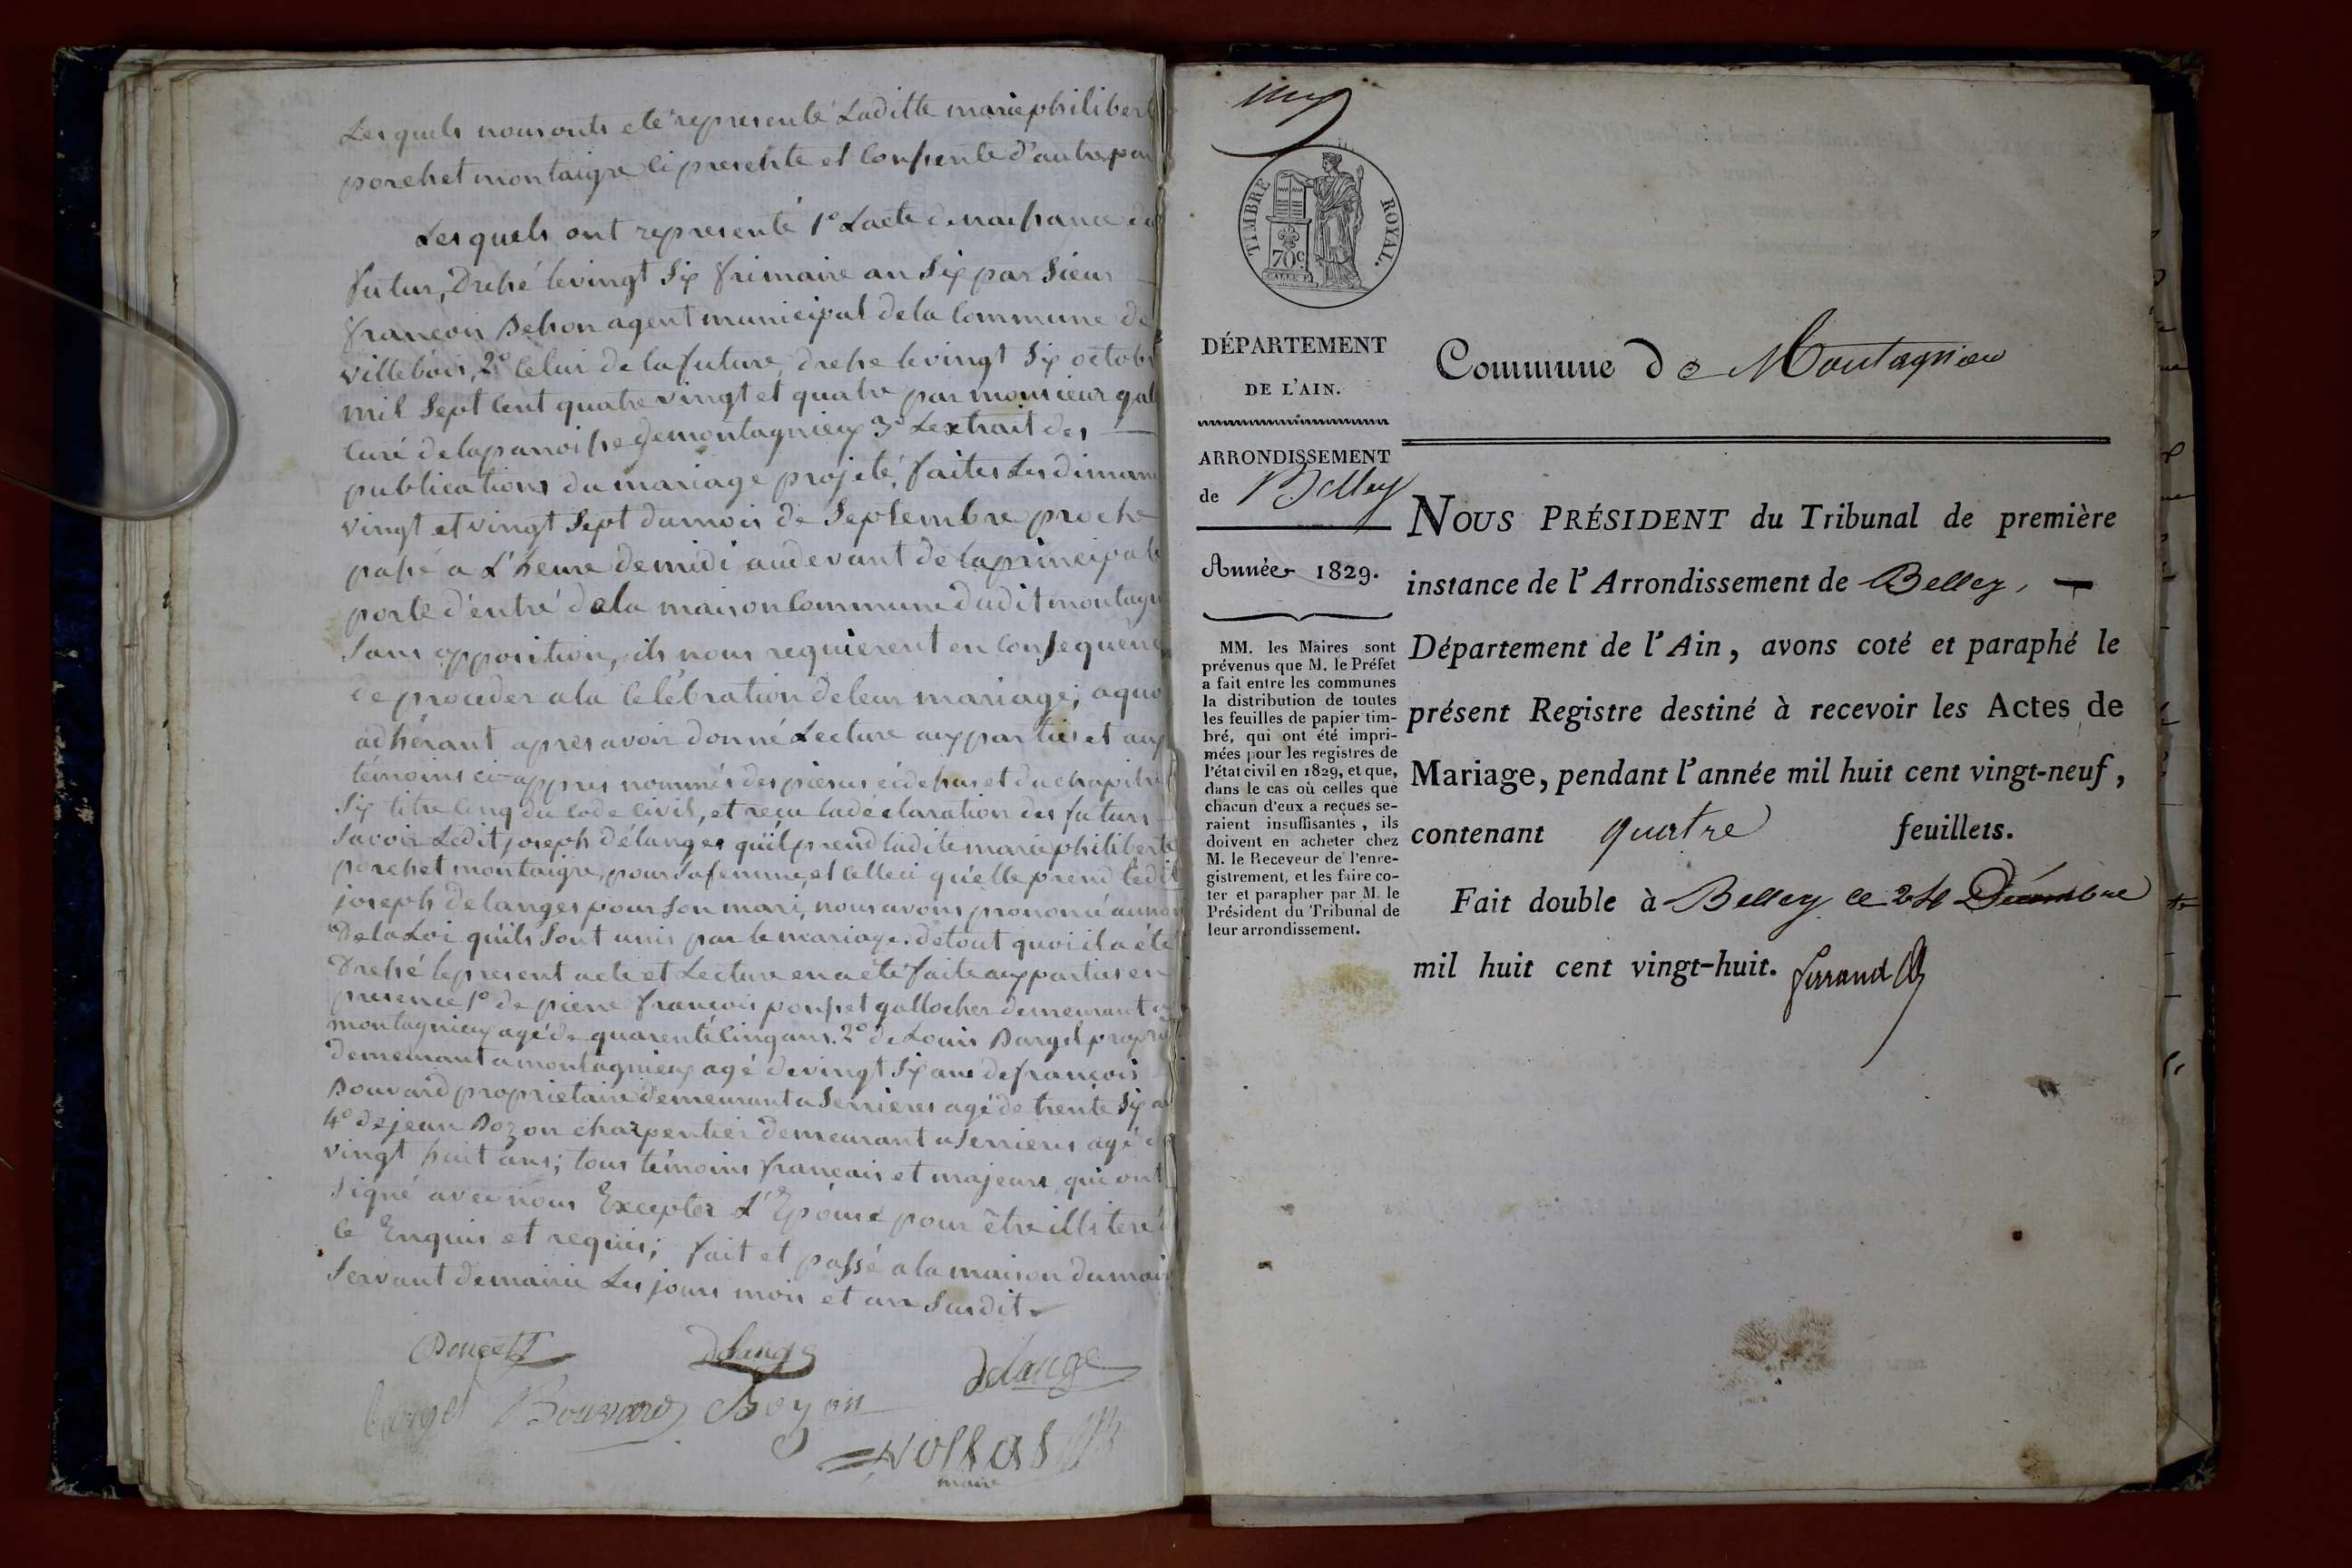 Les quels nous onts eté representé Laditte marie philibert
porchet montaigre ci presente et Consente d'autre par
Les quels ont representé 1° Lacte de naissance du
futur, Dressé le vingt Six frimaire an Six par Sieur
françois Dehon agent municipal de la Commune de
villebois, 2° Celui de la future, dressé le vingt Six octob
mil Sept Cent quatre vingt et quatre par monsieur gal
Curé de la parroisse de montagnieux 3° Lextrait des
publications du mariage projeté, faites Les diman
vingt et vingt Sept du mois de Septembre proche
passé a L'heure de midi audevant de la principale
porte d'entré de la maison Commune dudit montagn
Sans opposition, ils nous requierent en Consequenc
de proceder a la Celébration de leur mariage; a quo
adhérant apres avoir donné Lecture aux parties et aux
témoins ci-appres nommés des pieces ci dessus et du chapitre
Six titre Cinq du Code Civil, et reçu la déclaration des futurs
Savoir Ledit joseph délanges qu'il prend ladite marie philiberte
porchet montaigre, pour Sa femme, et Celleci qu'elle prend ledit
joseph delanges pour Son mari, nous avons prononcé au nom
De la Loi qu'ils Sont unis par le mariage. de tout quoi il a été
Dressé le present acte et Lecture en a été faite aux parties en
presence 1° de pierre françois ponset gallocher demeurant a
montagnieux agé de quarente Cinq ans. 2° de Louis Bargel propri
demeurant a montagnieux agé de vingt Six ans de françois
Bouvard proprietaire demeurant a Serrieres agé de trente Six an
4° de jean Bozon charpentier demeurant a Serrieres agé de
vingt huit ans; tous témoins francais et majeurs, qui ont
Signé avec nous Excepter L'Epouse pour être illiteré
le Enquis et requis; fait et passé a la maison du mair
Servant de mairie Les jours mois et an Susdit.
Delange
Delange
Bargel Bouvard Bozon
maire
TIMBRE ROYAL.
70c
DÉPARTEMENT
DE L'AIN.
ARRONDISSEMENT
de Belley
Année 1829.
MM. les Maires sont
prévenus que M. le Préfet
a fait entre les communes
la distribution de toutes
les feuilles de papier tim-
bré, qui ont été impri-
mées pour les registres de
l'état civil en 1829, et que,
dans le cas où celles que
chacun d'eux a reçues se-
raient insuffisantes, ils
doivent en acheter chez
M. le Receveur de l'enre-
gistrement, et les faire co-
ter et parapher par M. le
Président du Tribunal de
leur arrondissement.
Commune de Montagnieu
NOUS PRÉSIDENT du Tribunal de première
instance de l'Arrondissement de Belley,
Département de l'Ain, avons coté et paraphé le
présent Registre destiné à recevoir les Actes de
Mariage, pendant l'année mil huit cent vingt-neuf,
contenant quatre feuillets.
Fait double à Belley le 24 Décembre
mil huit cent vingt-huit. ferrand